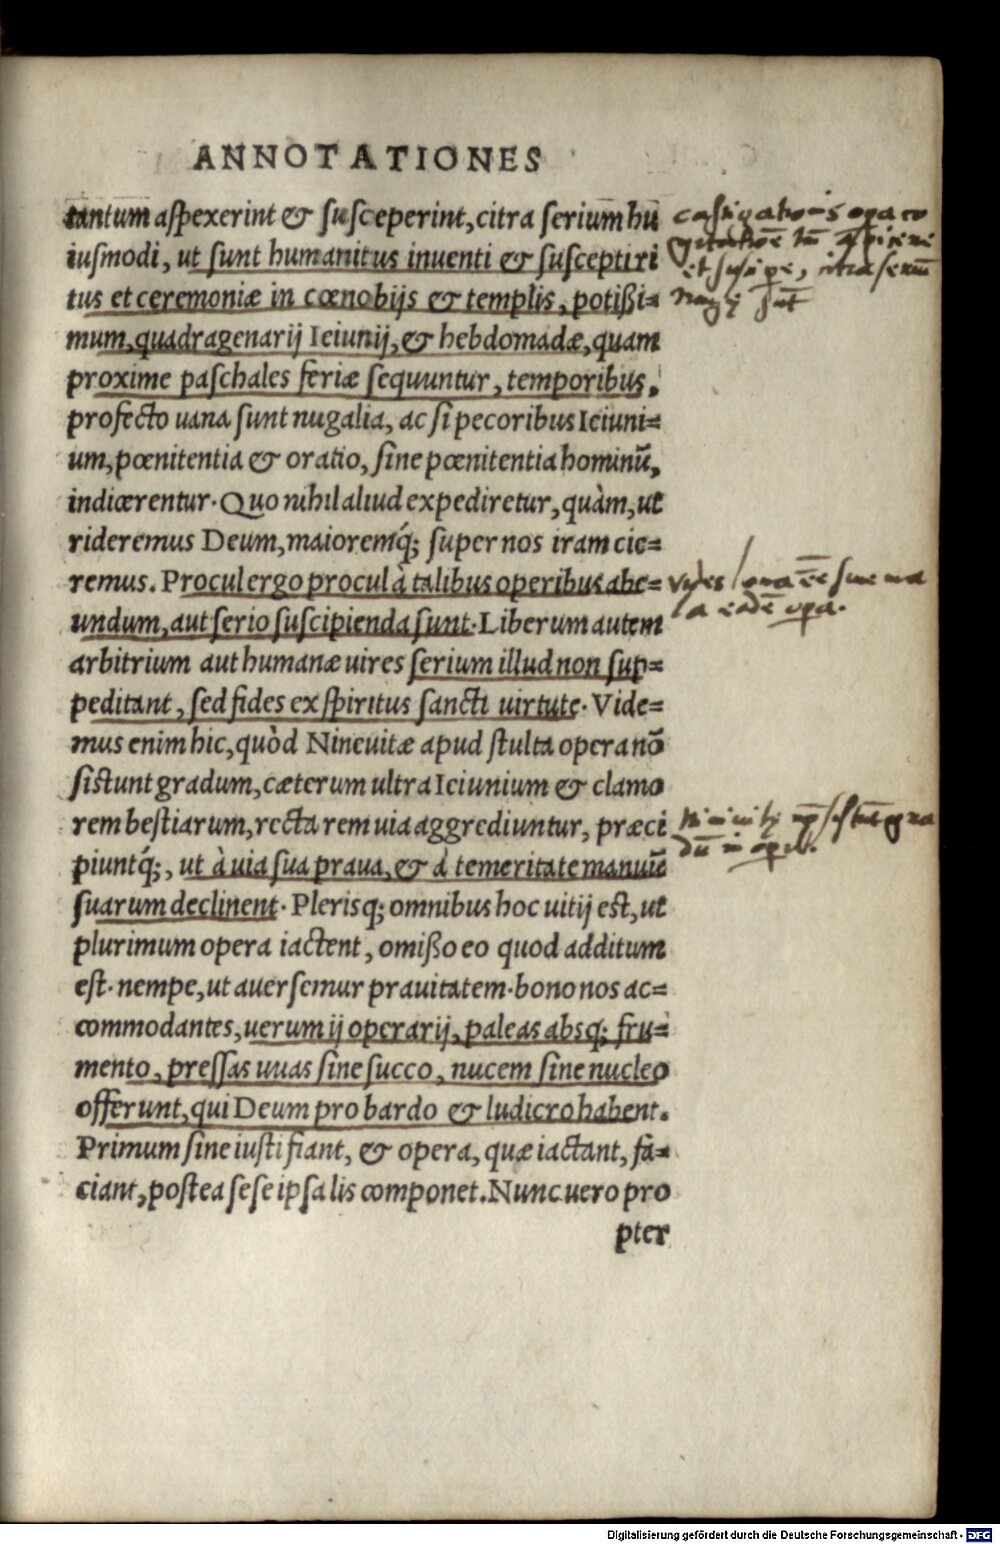 ANNOTATIONES
tantum aſpexerint & ſuſceperint, citra ſerium hu
iuſmodi, ut ſunt humanitus inuenti & ſuſcepti ri
tus et ceremoniæ in cœnobijs & templis, potißi=
mum, quadragenarij Ieiunij, & hebdomadæ, quam
proxime paſchales feriæ ſequuntur, temporibus,
profecto uana ſunt nugalia, ac ſi pecoribus Ieiuni=
um, pœnitentia & oratio, ſine pœnitentia hominũ,
indicerentur. Quo nihil aliud expediretur, quàm, ut
rideremus Deum, maioremq́; ſuper nos iram cie=
remus. Procul ergo procul à talibus operibus abe=
undum, aut ſerio ſuſcipienda ſunt. Liberum autem
arbitrium aut humanæ uires ſerium illud non ſup=
peditant, ſed fides ex ſpiritus ſancti uirtute. Vide=
mus enim hic, quòd Nineuitæ apud ſtulta opera nõ
ſiſtunt gradum, cæterum ultra Ieiunium & clamo
rem beſtiarum, recta rem uia aggrediuntur, præci
piuntq́;, ut à uia ſua praua, & à temeritate manuũ
ſuarum declinent. Plerisq; omnibus hoc uitij eſt, ut
plurimum opera iactent, omißo eo quod additum
eſt. nempe, ut auerſemur prauitatem. bono nos ac=
commodantes, uerum ij operarij, paleas absq; fru=
mento, preſſas uuas ſine ſucco, nucem ſine nucleo
offerunt, qui Deum pro bardo & ludicro habent.
Primum ſine iuſti fiant, & opera, quæ iactant, fa=
ciant, poſtea ſeſe ipſa lis componet. Nunc uero pro
pter
castigationis opa
citra seriũ
Digitalisierung gefördert durch die Deutsche Forschungsgemeinschaft - DFG